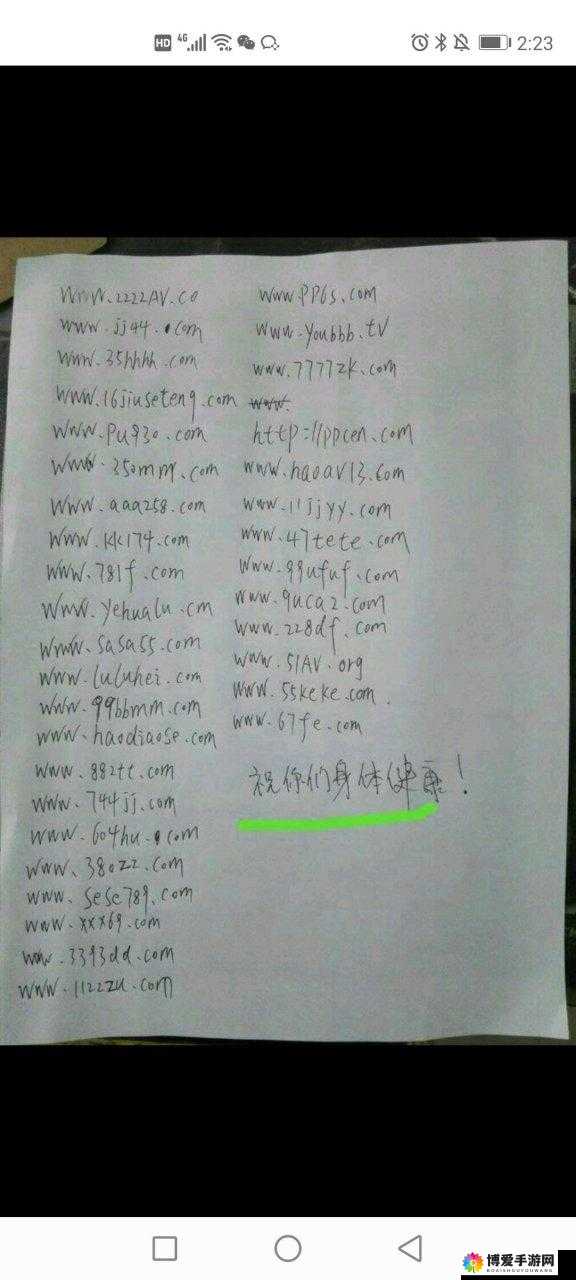 HD 4G 2:23
www.2222AV.co
www.jj44.com
www.35hhhh.com
www.16jiuseteng.com
www.pu930.com
www.350mm.com
www.aaa258.com
www.kk174.com
www.781f.com
www.yehualu.cm
www.sasa55.com
www.luluhei.com
www.99bbmm.com
www.haodiaose.com
www.882tt.com
www.744jj.com
www.604hu.com
www.380zz.com
www.sese789.com
www.xxx69.com
www.3393dd.com
www.1122zu.com
www.PP6s.com
www.youbbb.tv
www.7777zk.com
www.
http://ppcen.com
www.haoav13.com
www.11jjyy.com
www.47tete.com
www.99ufuf.com
www.9uca2.com
www.228df.com
www.51AV.org
www.55keke.com.
www.67fe.com
祝你们身体健康!
博爱手游网
BOAISHOUYOUWANG